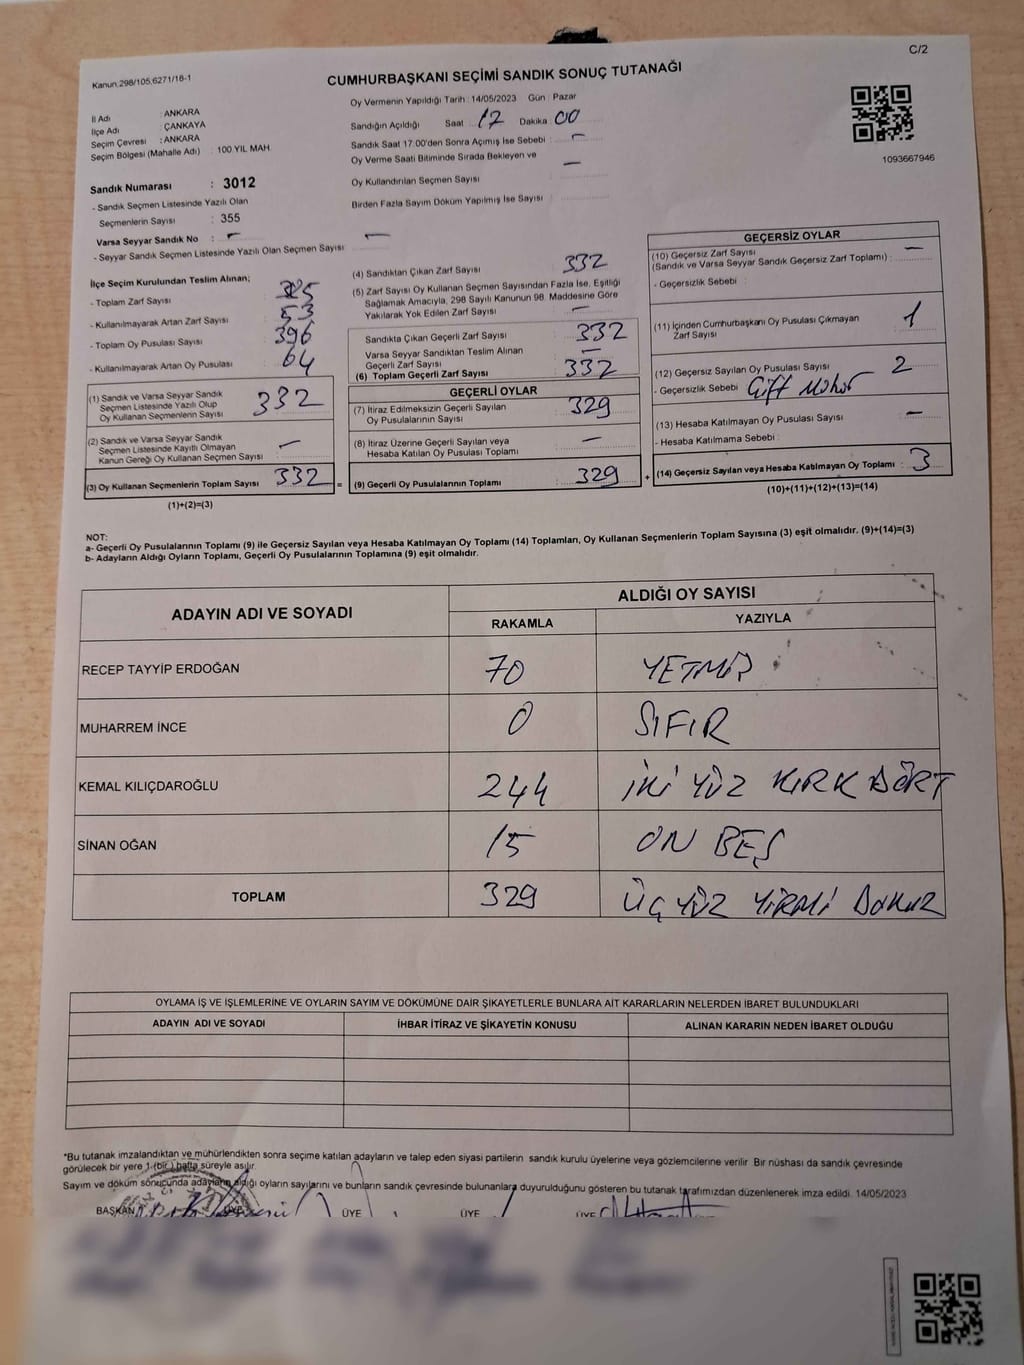 C/2
Kanun.298/105,6271/16-1
CUMHURBAŞKANI SEÇİMİ SANDIK SONUÇ TUTANAĞI
İl Adı : ANKARA
İlçe Adı : ÇANKAYA
Seçim Çevresi : ANKARA
Seçim Bölgesi (Mahalle Adı) : 100 YIL MAH.
Sandık Numarası : 3012
- Sandık Seçmen Listesinde Yazılı Olan
Seçmenlerin Sayısı : 355
Varsa Seyyar Sandık No : -
- Seyyar Sandık Seçmen Listesinde Yazılı Olan Seçmen Sayısı : -
Oy Vermenin Yapıldığı Tarih : 14/05/2023 Gün : Pazar
Sandığın Açıldığı Saat 17 Dakika 00
Sandık Saat 17.00'den Sonra Açılmış İse Sebebi : -
Oy Verme Saati Bitiminde Sırada Bekleyen ve
Oy Kullandırılan Seçmen Sayısı : -
Birden Fazla Sayım Döküm Yapılmış İse Sayısı :
1093667946
İlçe Seçim Kurulundan Teslim Alınan;
- Toplam Zarf Sayısı
- Kullanılmayarak Artan Zarf Sayısı : 53
- Toplam Oy Pusulası Sayısı : 396
- Kullanılmayarak Artan Oy Pusulası : 64
(1) Sandık ve Varsa Seyyar Sandık
Seçmen Listesinde Yazılı Olup
Oy Kullanan Seçmenlerin Sayısı : 332
(2) Sandık ve Varsa Seyyar Sandık
Seçmen Listesinde Kayıtlı Olmayan
Kanun Gereği Oy Kullanan Seçmen Sayısı : -
(3) Oy Kullanan Seçmenlerin Toplam Sayısı : 332
(1)+(2)=(3)
(4) Sandıktan Çıkan Zarf Sayısı : 332
(5) Zarf Sayısı Oy Kullanan Seçmen Sayısından Fazla İse, Eşitliği
Sağlamak Amacıyla, 298 Sayılı Kanunun 98. Maddesine Göre
Yakılarak Yok Edilen Zarf Sayısı : -
Sandıkta Çıkan Geçerli Zarf Sayısı : 332
Varsa Seyyar Sandıktan Teslim Alınan
Geçerli Zarf Sayısı : -
(6) Toplam Geçerli Zarf Sayısı : 332
GEÇERLİ OYLAR
(7) İtiraz Edilmeksizin Geçerli Sayılan
Oy Pusulalarının Sayısı : 329
(8) İtiraz Üzerine Geçerli Sayılan veya
Hesaba Katılan Oy Pusulası Toplamı : -
(9) Geçerli Oy Pusulalarının Toplamı : 329
GEÇERSİZ OYLAR
(10) Geçersiz Zarf Sayısı
(Sandık ve Varsa Seyyar Sandık Geçersiz Zarf Toplamı) : -
- Geçersizlik Sebebi :
(11) İçinden Cumhurbaşkanı Oy Pusulası Çıkmayan
Zarf Sayısı : 1
(12) Geçersiz Sayılan Oy Pusulası Sayısı : 2
- Geçersizlik Sebebi : Çift Mühür
(13) Hesaba Katılmayan Oy Pusulası Sayısı : -
- Hesaba Katılmama Sebebi :
(14) Geçersiz Sayılan veya Hesaba Katılmayan Oy Toplamı : 3
(10)+(11)+(12)+(13)=(14)
NOT:
a- Geçerli Oy Pusulalarının Toplamı (9) ile Geçersiz Sayılan veya Hesaba Katılmayan Oy Toplamı (14) Toplamları, Oy Kullanan Seçmenlerin Toplam Sayısına (3) eşit olmalıdır. (9)+(14)=(3)
b- Adayların Aldığı Oyların Toplamı, Geçerli Oy Pusulalarının Toplamına (9) eşit olmalıdır.
ADAYIN ADI VE SOYADI
ALDIĞI OY SAYISI
RAKAMLA YAZIYLA
RECEP TAYYİP ERDOĞAN 70 YETMİŞ
MUHARREM İNCE 0 SIFIR
KEMAL KILIÇDAROĞLU 244 İKİ YÜZ KIRK DÖRT
SİNAN OĞAN 15 ON BEŞ
TOPLAM 329 ÜÇ YÜZ YİRMİ DOKUZ
OYLAMA İŞ VE İŞLEMLERİNE VE OYLARIN SAYIM VE DÖKÜMÜNE DAİR ŞİKAYETLERLE BUNLARA AİT KARARLARIN NELERDEN İBARET BULUNDUKLARI
ADAYIN ADI VE SOYADI İHBAR İTİRAZ VE ŞİKAYETİN KONUSU ALINAN KARARIN NEDEN İBARET OLDUĞU
*Bu tutanak imzalandıktan ve mühürlendikten sonra seçime katılan adayların ve talep eden siyasi partilerin sandık kurulu üyelerine veya gözlemcilerine verilir. Bir nüshası da sandık çevresinde
görülecek bir yere 1 (bir) hafta süreyle asılır.
Sayım ve döküm sonucunda adayların aldığı oyların sayılarını ve bunların sandık çevresinde bulunanlara duyurulduğunu gösteren bu tutanak tarafımızdan düzenlenerek imza edildi. 14/05/2023
BAŞKAN ÜYE ÜYE ÜYE ÜYE